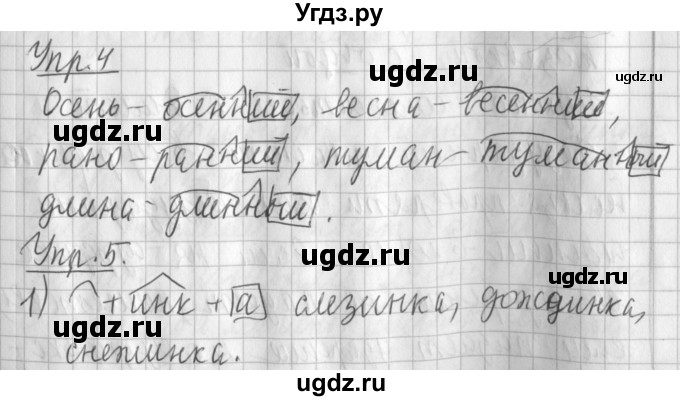 Угдз.ру
Упр.4
Осень – осенний, весна – весенний,
рано – ранний, туман – туманный
длина – длинный.
Упр.5.
1) + инк + а слезинка, дождинка,
снежинка.
ugdz.ru
ugdz.ru
ugdz.ru
ugdz.ru
ugdz.ru
ugdz.ru
ugdz.ru
ugdz.ru
ugdz.ru
ugdz.ru
ugdz.ru